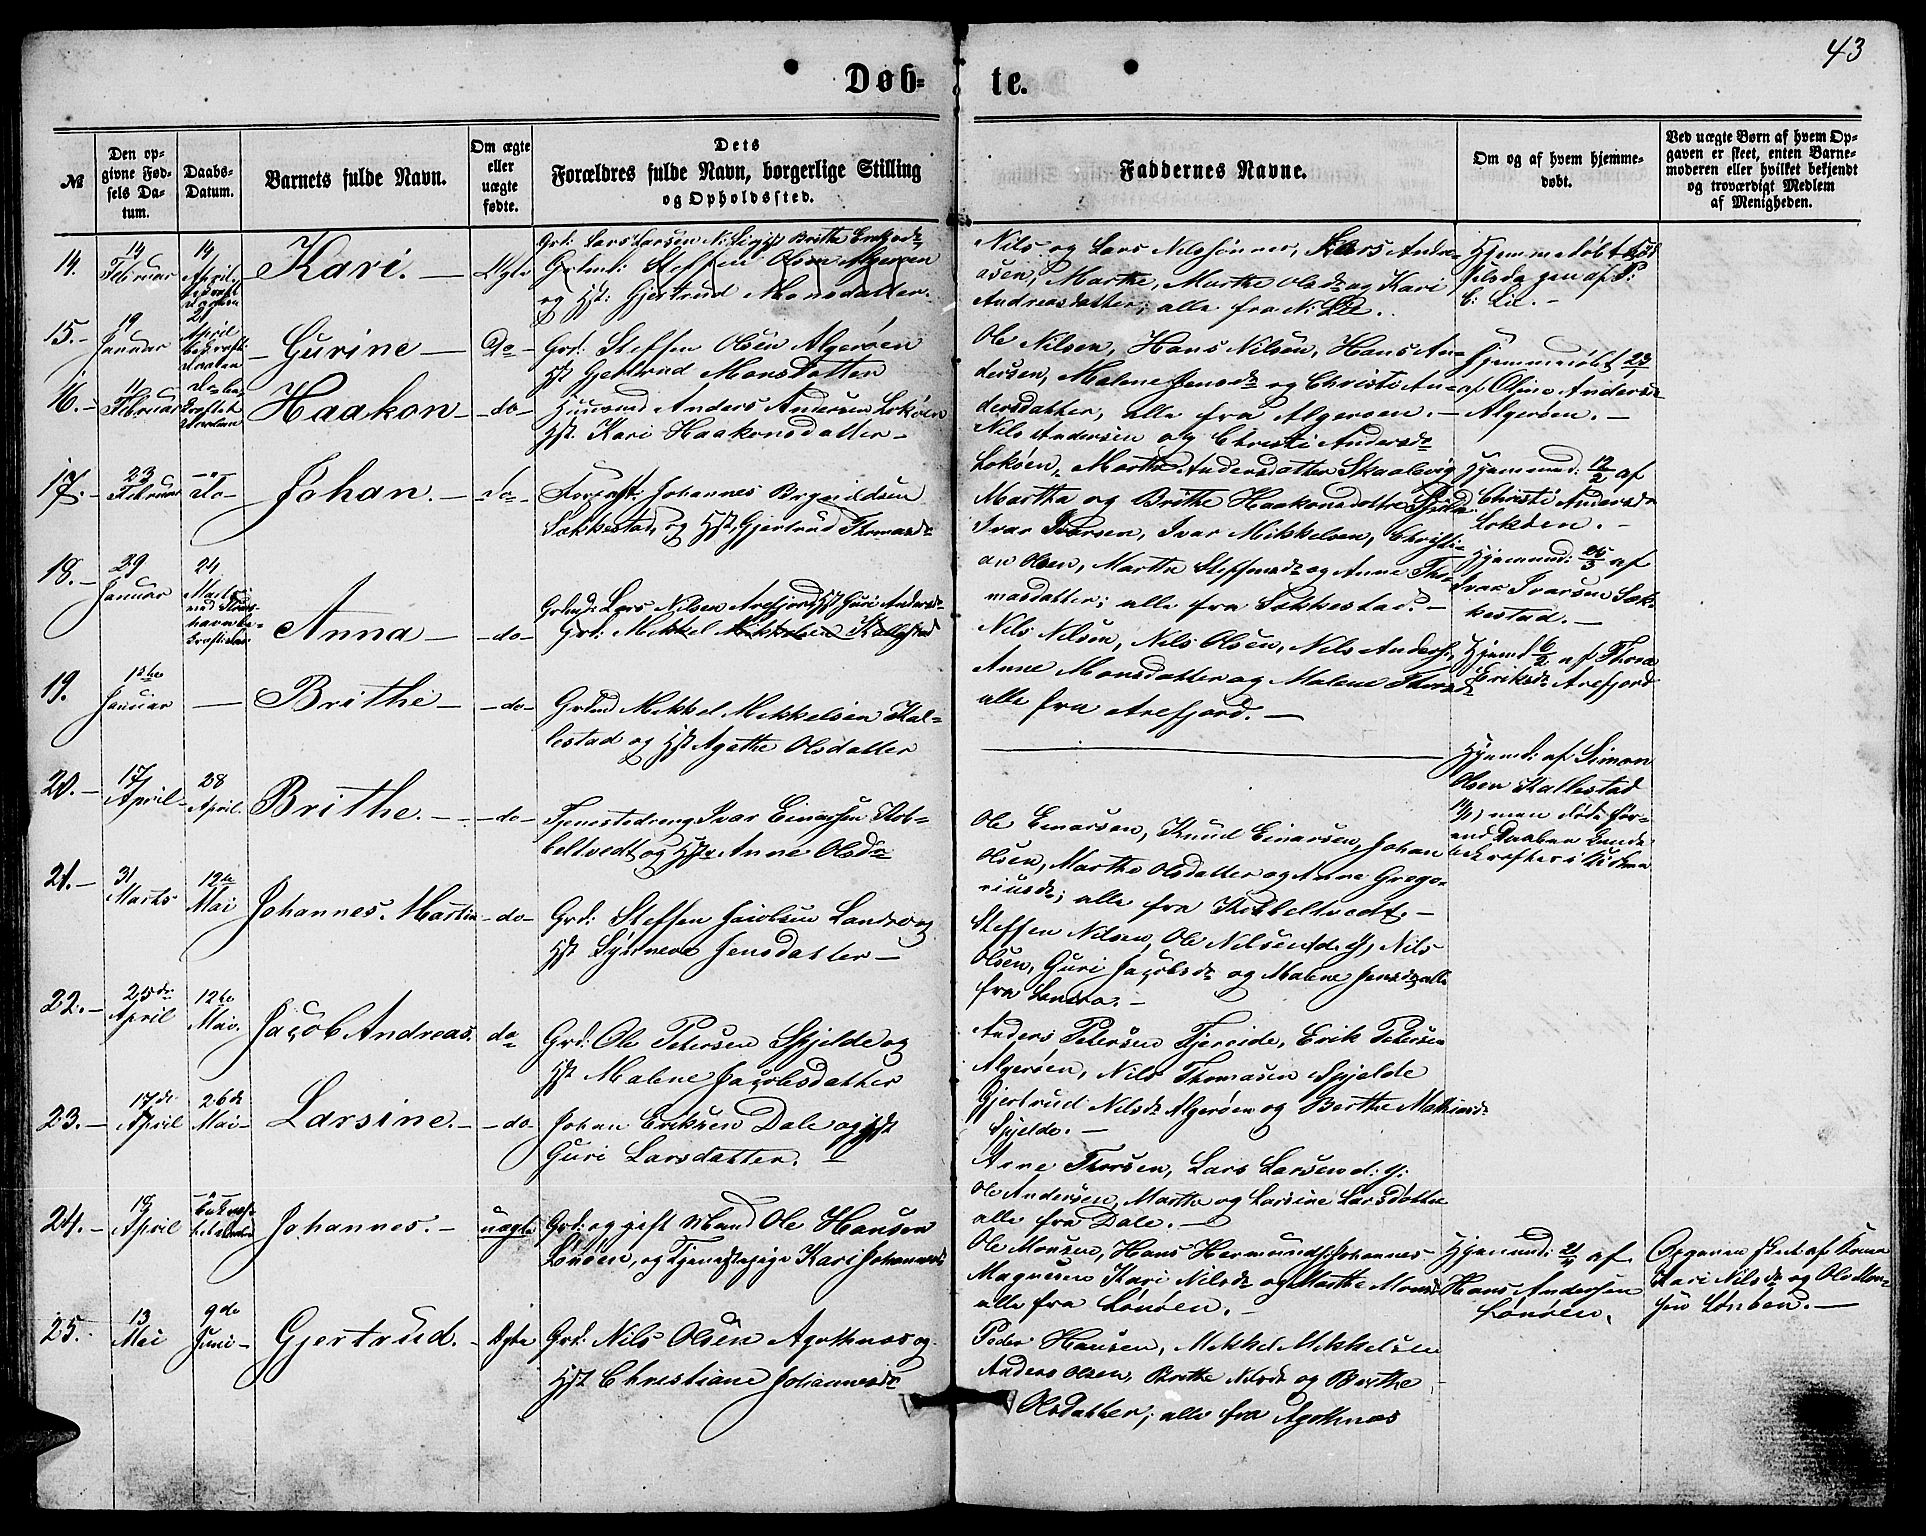 43
Døb- te.
№
Den op-
givne Fød-
sels Da-
tum.
Daabs-
Datum.
Barnets fulde Navn.
Om ægte
eller
uægte
fødte.
Dets
Forældres fulde Navn, borgerlige Stilling
og Opholdssted.
Faddernes Navne.
Om og af hvem hjemme-
døbt.
Ved uægte Børn af hvem Op-
gaven er skeet, enten Barne-
moderen eller hvilket bekjendt
og troværdigt Medlem
af Menigheden.
14.
14
Februar
14
April
Kari. —
Ægte
Grd: Lars Larsen N: Lie Hst Brithe
Grdmd: Steffen Olsen Algerøen
og Hst: Gjertrud Monsdatter.
Nils og Lars Nilssønner, Lars Andre-
asen, Marthe, Marthe Olsdr og Kari
Andreasdatter; alle fra N: Lie.
Hjemmedøbt
selsdagen af P:
E: Lie. —
15. —
19
Januar
21
April
bekræft:
Daaben
— Gurine —
Do —
Grd: Steffen Olsen Algerøen
Hst Gjertrud Monsdatter
Ole Nilsen, Hans Nilsen, Hans An-
dersen, Malene Jensdr og Christi An-
dersdatter, alle fra Algerøen. —
Hjemmedøbt 23
af Oline Andersdr
Algerøen. —
16. —
11
Februar
Do be-
kræftet
Daaben
Haakon —
— do —
Huusmd Anders Andersen Lokøen
Hst. Kari Haakonsdatter —
Nils Andersen og Christi Andersdr
Lokøen, Marthe Andersdatter Skaalevig
Martha og Brithe Haakonsdøttre
Hjemmed: 12/2 af
Christi Andersdr
Lokøen. —
17. —
23
Februar
— Do —
Johan. —
— do —
Johannes Brynildsen
Søkkestad, og Hst. Gjertrud Thomasdr
Ivar Iversen, Ivar Mikkelsen, Christi-
an Olsen, Marthe Steffensdr og Anne Tho-
masdatter; alle fra Søkkestad. —
Hjemmed: 25/3 af
Ivar Ivarsen Søk-
kestad. —
18. —
29
Januar
24
Marts
Anna —
— do —
Grdmd: Lars Nilsen Arefjord Hst Guri Andersdr
Grd: Mikkel Mikkelsen Kallestad
Nils Nilsen, Nils Olsen, Nils Anders:
Anne Monsdatter og Malene
alle fra Arefjord. —
Hjemd 6/2 af Thora
Eriksdr Arefjord
19.
Januar
—
Brithe —
— do —
Grdmd Mikkel Mikkelsen Kal-
lestad og Hst Agathe Olsdatter
Hjemd: af Simon
Olsen Kallestad
men døde for-
end Daaben kunde
bekræftes i Kirken
20. —
17
April —
28
April.
Brithe. —
— do —
Tjenestedreng Ivar Einarsen Kob-
beltvedt og Hst Anne Olsdr
Ole Einarsen, Knud Einarsen, Johan
Olsen, Marthe Olsdatter og Anne Grego-
riusdr; alle fra Kobbeltvedt. —
21. —
31
Marts
12te
Mai
Johannes Martin
— do —
Grd: Steffen Jacobsen Landro og
Hst Synneve Jensdatter —
Steffen Nilsen, Ole Nilsen d. y, Nils
Olsen, Guri Jacobsdr og Malene Jensdr alle
fra Landro. —
22. —
25de
April
12te
Mai.
Jacob Andreas.
do
Grd: Ole Petersen Spjelde og
Hst Malene Jacobsdatter
Anders Petersen Tjereide, Erik Petersen
Algerøen, Nils Thomasen Spjelde
Gjertrud Nilsdr Algerøen og Berthe Mathiasdr
Spjelde. —
23. —
17de
April
26de
Mai —
Larsine. —
— do
Johan Eriksen Dale og Hst
Guri Larsdatter. —
Arne Thorsen, Lars Larsen d: y:
Ole Andersen, Marthe og Larsine Larsdøttre
alle fra Dale. —
24. —
18
April
Johannes. —
uægte
Grd: og gift Mand Ole Hansen
Lønøen, og Tjenestepige Kari Johannesdr
Ole Monsen, Hans Hermunds: Johannes
Magnesen Kari Nilsdr og Marthe Monsdr
alle fra Lønøen. —
Hjemmed: 21/4 af
Hans Andersen
Lønøen.
Opgaven skeet af Kona
Kari Nilsdr og Ole Mon-
sen Lønøen. —
25. —
13
Mai
9de
Juni —
Gjertrud. —
Ægte
Grd: Nils Olsen Agothnes og
Hst Christiane Johannesdr
Peder Hansen, Mikkel Mikkelsen
Anders Olsen, Brithe Nilsdr og Berthe
Olsdatter; alle fra Agothnes